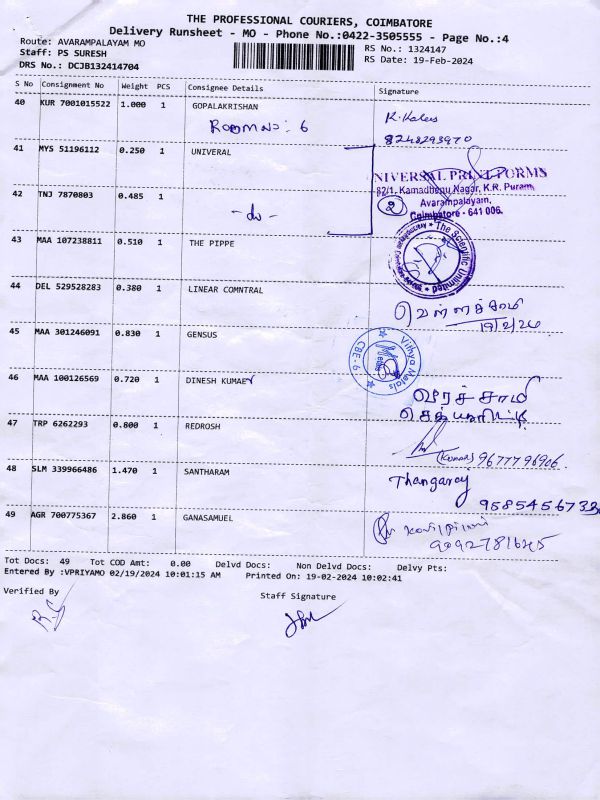 THE PROFESSIONAL COURIERS, COIMBATORE
Delivery Runsheet - MO - Phone No.:0422-3505555 - Page No.:4
Route: AVARAMPALAYAM MO
RS No.: 1324147
Staff: PS SURESH
RS Date: 19-Feb-2024
DRS No.: DCJB132414704
S No Consignment No Weight PCS Consignee Details Signature
40 KUR 7001015522 1.000 1 GOPALAKRISHAN
Room No: 6
8248293970
41 MYS 51196112 0.250 1 UNIVERAL
NIVERSAL PRINT FORMS
82/1, Kamadhenu Nagar, K.R. Puram,
Avarampalayam,
Coimbatore - 641 006.
42 TNJ 7870803 0.485 1
-do-
2
43 MAA 107238811 0.510 1 THE PIPPE
The Scientific Unlimited
44 DEL 529528283 0.380 1 LINEAR COMNTRAL
வெள்ளச்சாமி
19/2/24
45 MAA 301246091 0.830 1 GENSUS
Vithya Metals
CBE-6
46 MAA 100126569 0.720 1 DINESH KUMAE
வீரச்சாமி
47 TRP 6262293 0.800 1 REDROSH
(Kumar) 9677796906
48 SLM 339966486 1.470 1 SANTHARAM
Thangaraj
9585456733
49 AGR 700775367 2.860 1 GANASAMUEL
Tot Docs: 49 Tot COD Amt: 0.00 Delvd Docs: Non Delvd Docs: Delvy Pts:
Entered By :VPRIYAMO 02/19/2024 10:01:15 AM Printed On: 19-02-2024 10:02:41
Verified By
Staff Signature